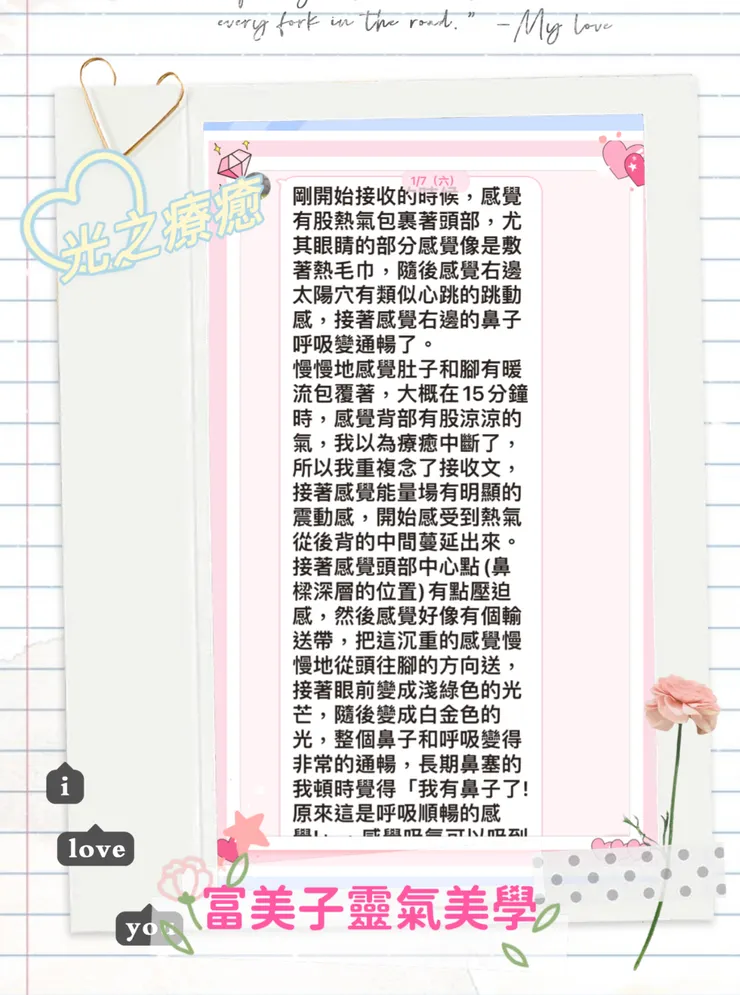 every fork in the road." -My love
光之療癒
1/7（六）
剛開始接收的時候，感覺
有股熱氣包裹著頭部，尤
其眼睛的部分感覺像是敷
著熱毛巾，隨後感覺右邊
太陽穴有類似心跳的跳動
感，接著感覺右邊的鼻子
呼吸變通暢了。
慢慢地感覺肚子和腳有暖
流包覆著，大概在15分鐘
時，感覺背部有股涼涼的
氣，我以為療癒中斷了，
所以我重複念了接收文，
接著感覺能量場有明顯的
震動感，開始感受到熱氣
從後背的中間蔓延出來。
接著感覺頭部中心點(鼻
樑深層的位置)有點壓迫
感，然後感覺好像有個輸
送帶，把這沉重的感覺慢
慢地從頭往腳的方向送，
接著眼前變成淺綠色的光
芒，隨後變成白金色的
光，整個鼻子和呼吸變得
非常的通暢，長期鼻塞的
我頓時覺得「我有鼻子了!
原來這是呼吸順暢的感
覺!」，感覺吸氣可以吸到
i
love
you
富美子靈氣美學